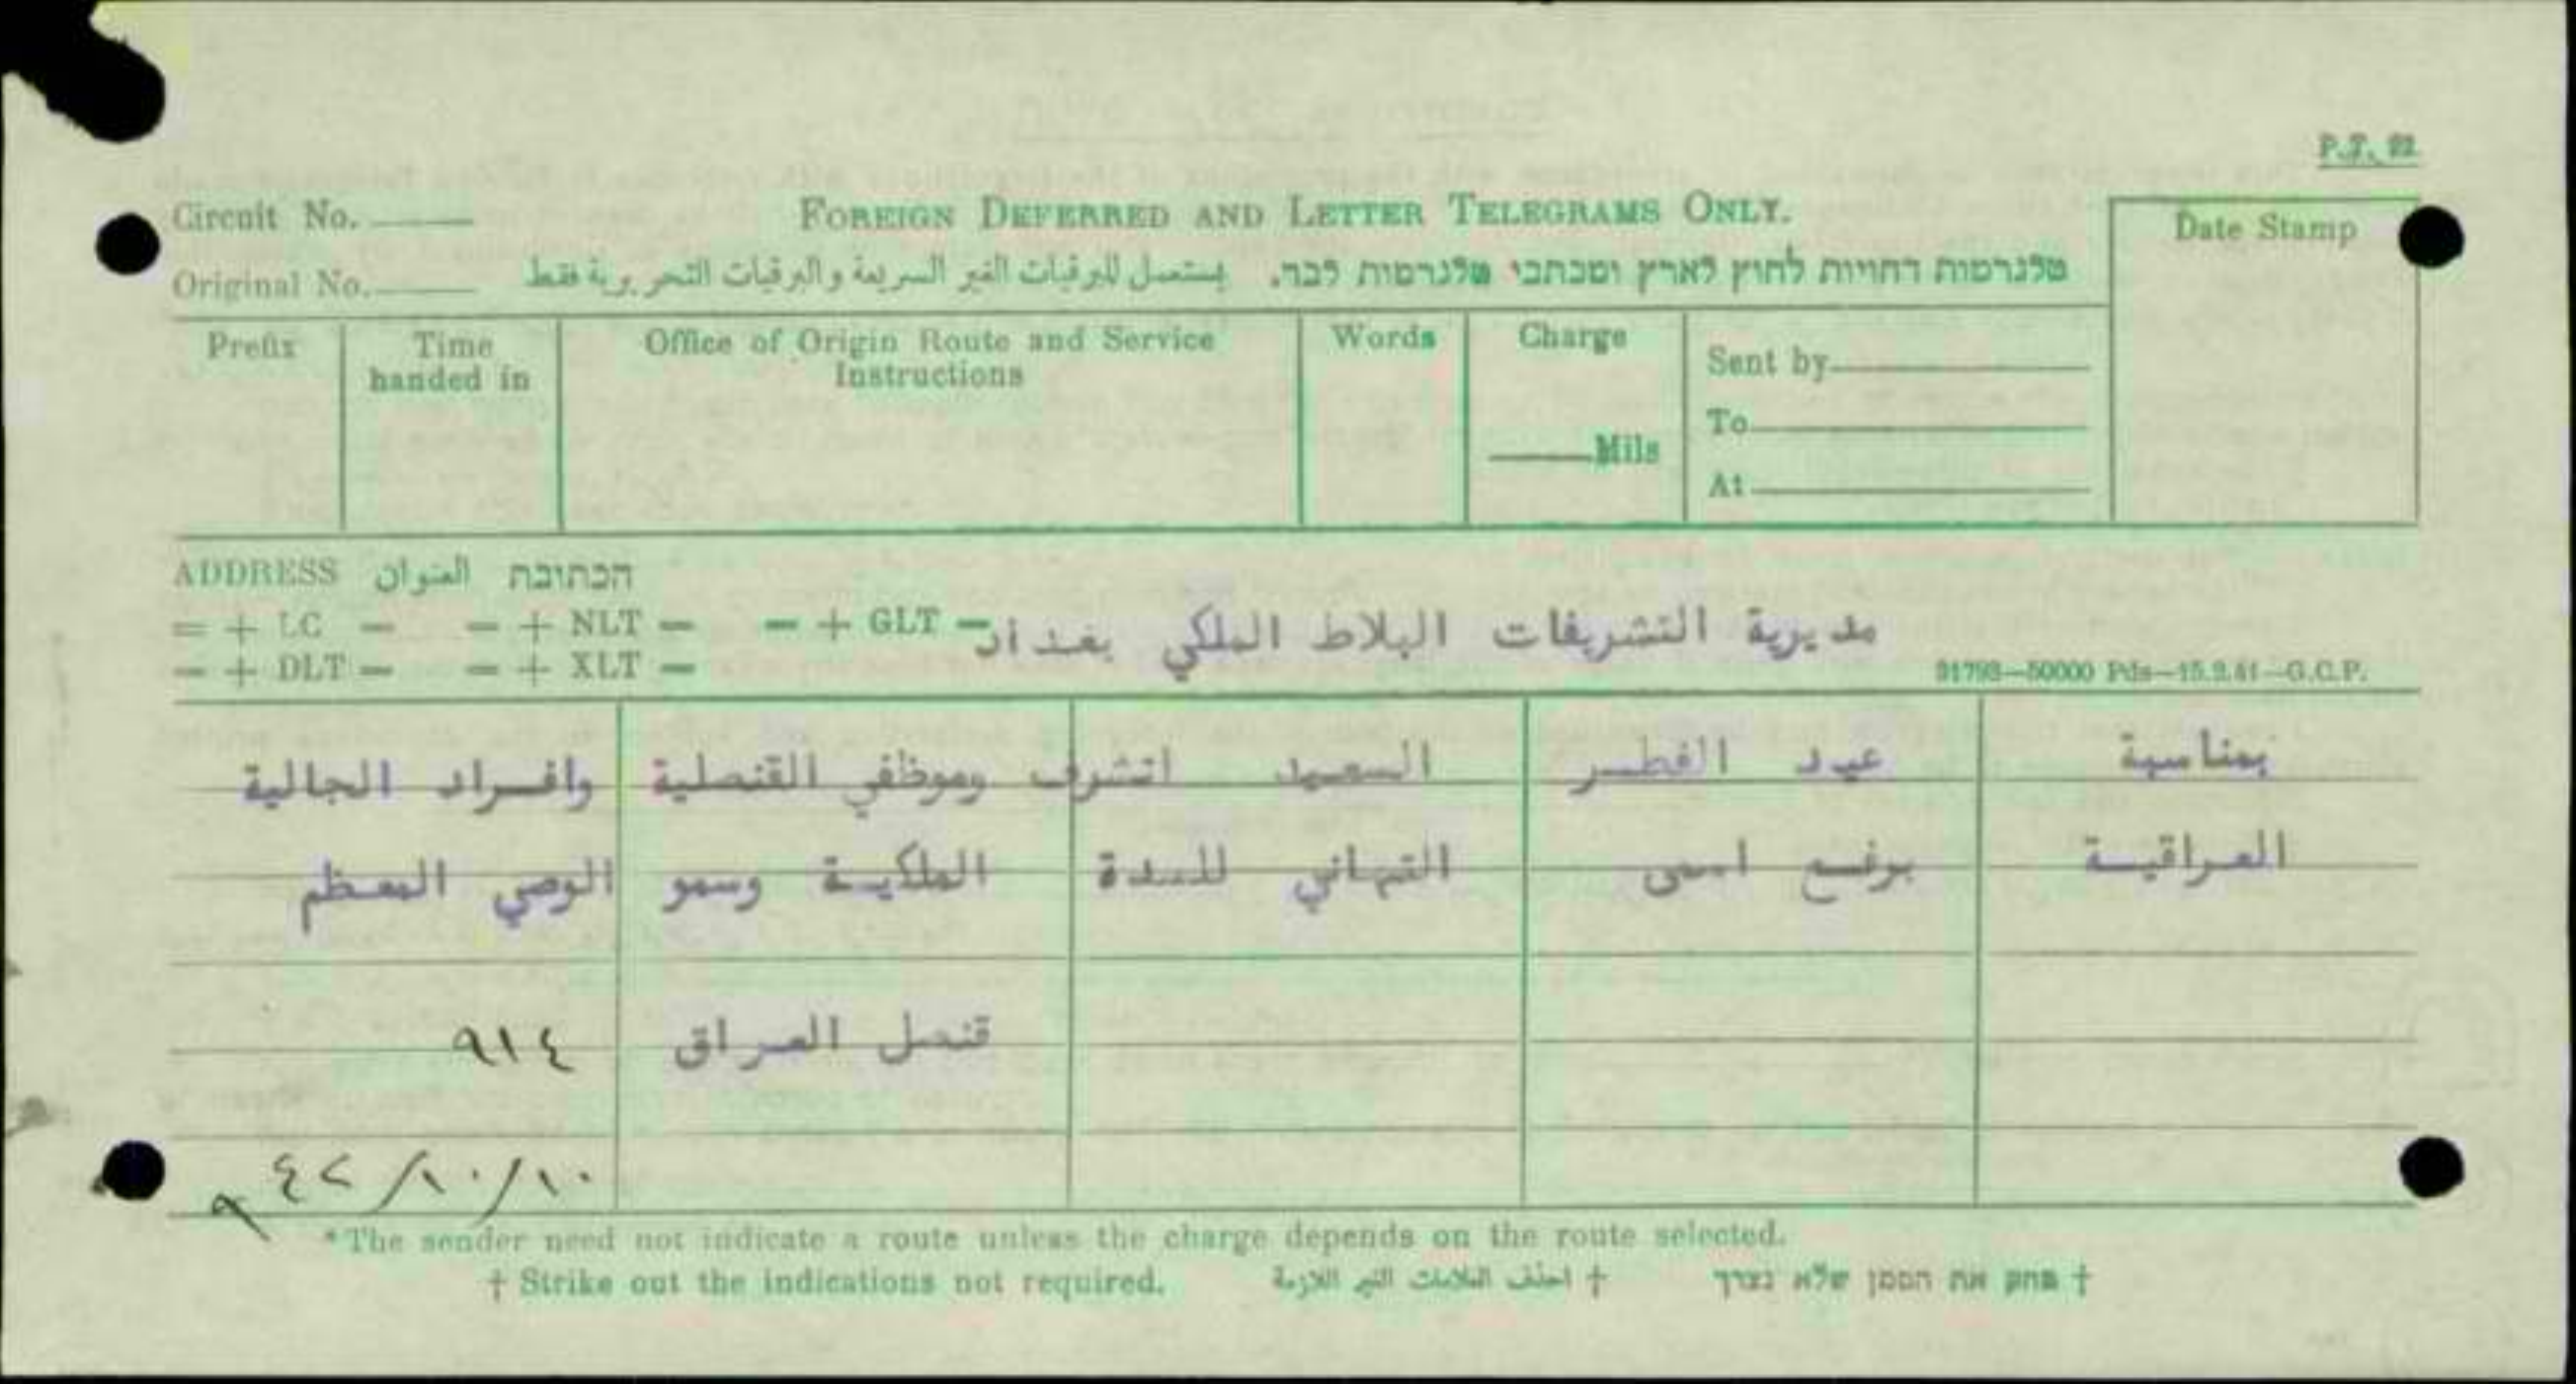 P.T. 22
Circuit No.
FOREIGN DEFERRED AND LETTER TELEGRAMS ONLY.
Date Stamp
Original No.
يستعمل للبرقيات الغير السريعة والبرقيات التحريرية فقط
טלגרמות דחויות לחוץ לארץ ומכתבי טלגרמות לבד.
Prefix
Time handed in
Office of Origin Route and Service Instructions
Words
Charge
Mils
Sent by
To
At
ADDRESS العنوان הכתובת
= + LC — — + NLT — — + GLT —
مديرية التشريفات البلاط الملكي بغداد
— + DLT — — + XLT —
31793—50000 Pds—15.9.41—G.C.P.
بمناسبة عيد الفطر السعيد اتشرف وموظفي القنصلية وافراد الجالية
العراقية برفع اسمى التهاني للسدة الملكية وسمو الوصي المعظم
قنصل العراق ٩١٤
١٠/١٠/٤٢
*The sender need not indicate a route unless the charge depends on the route selected.
† Strike out the indications not required. † احذف العلامات الغير اللازمة † מחק את הסמן שלא נצרך